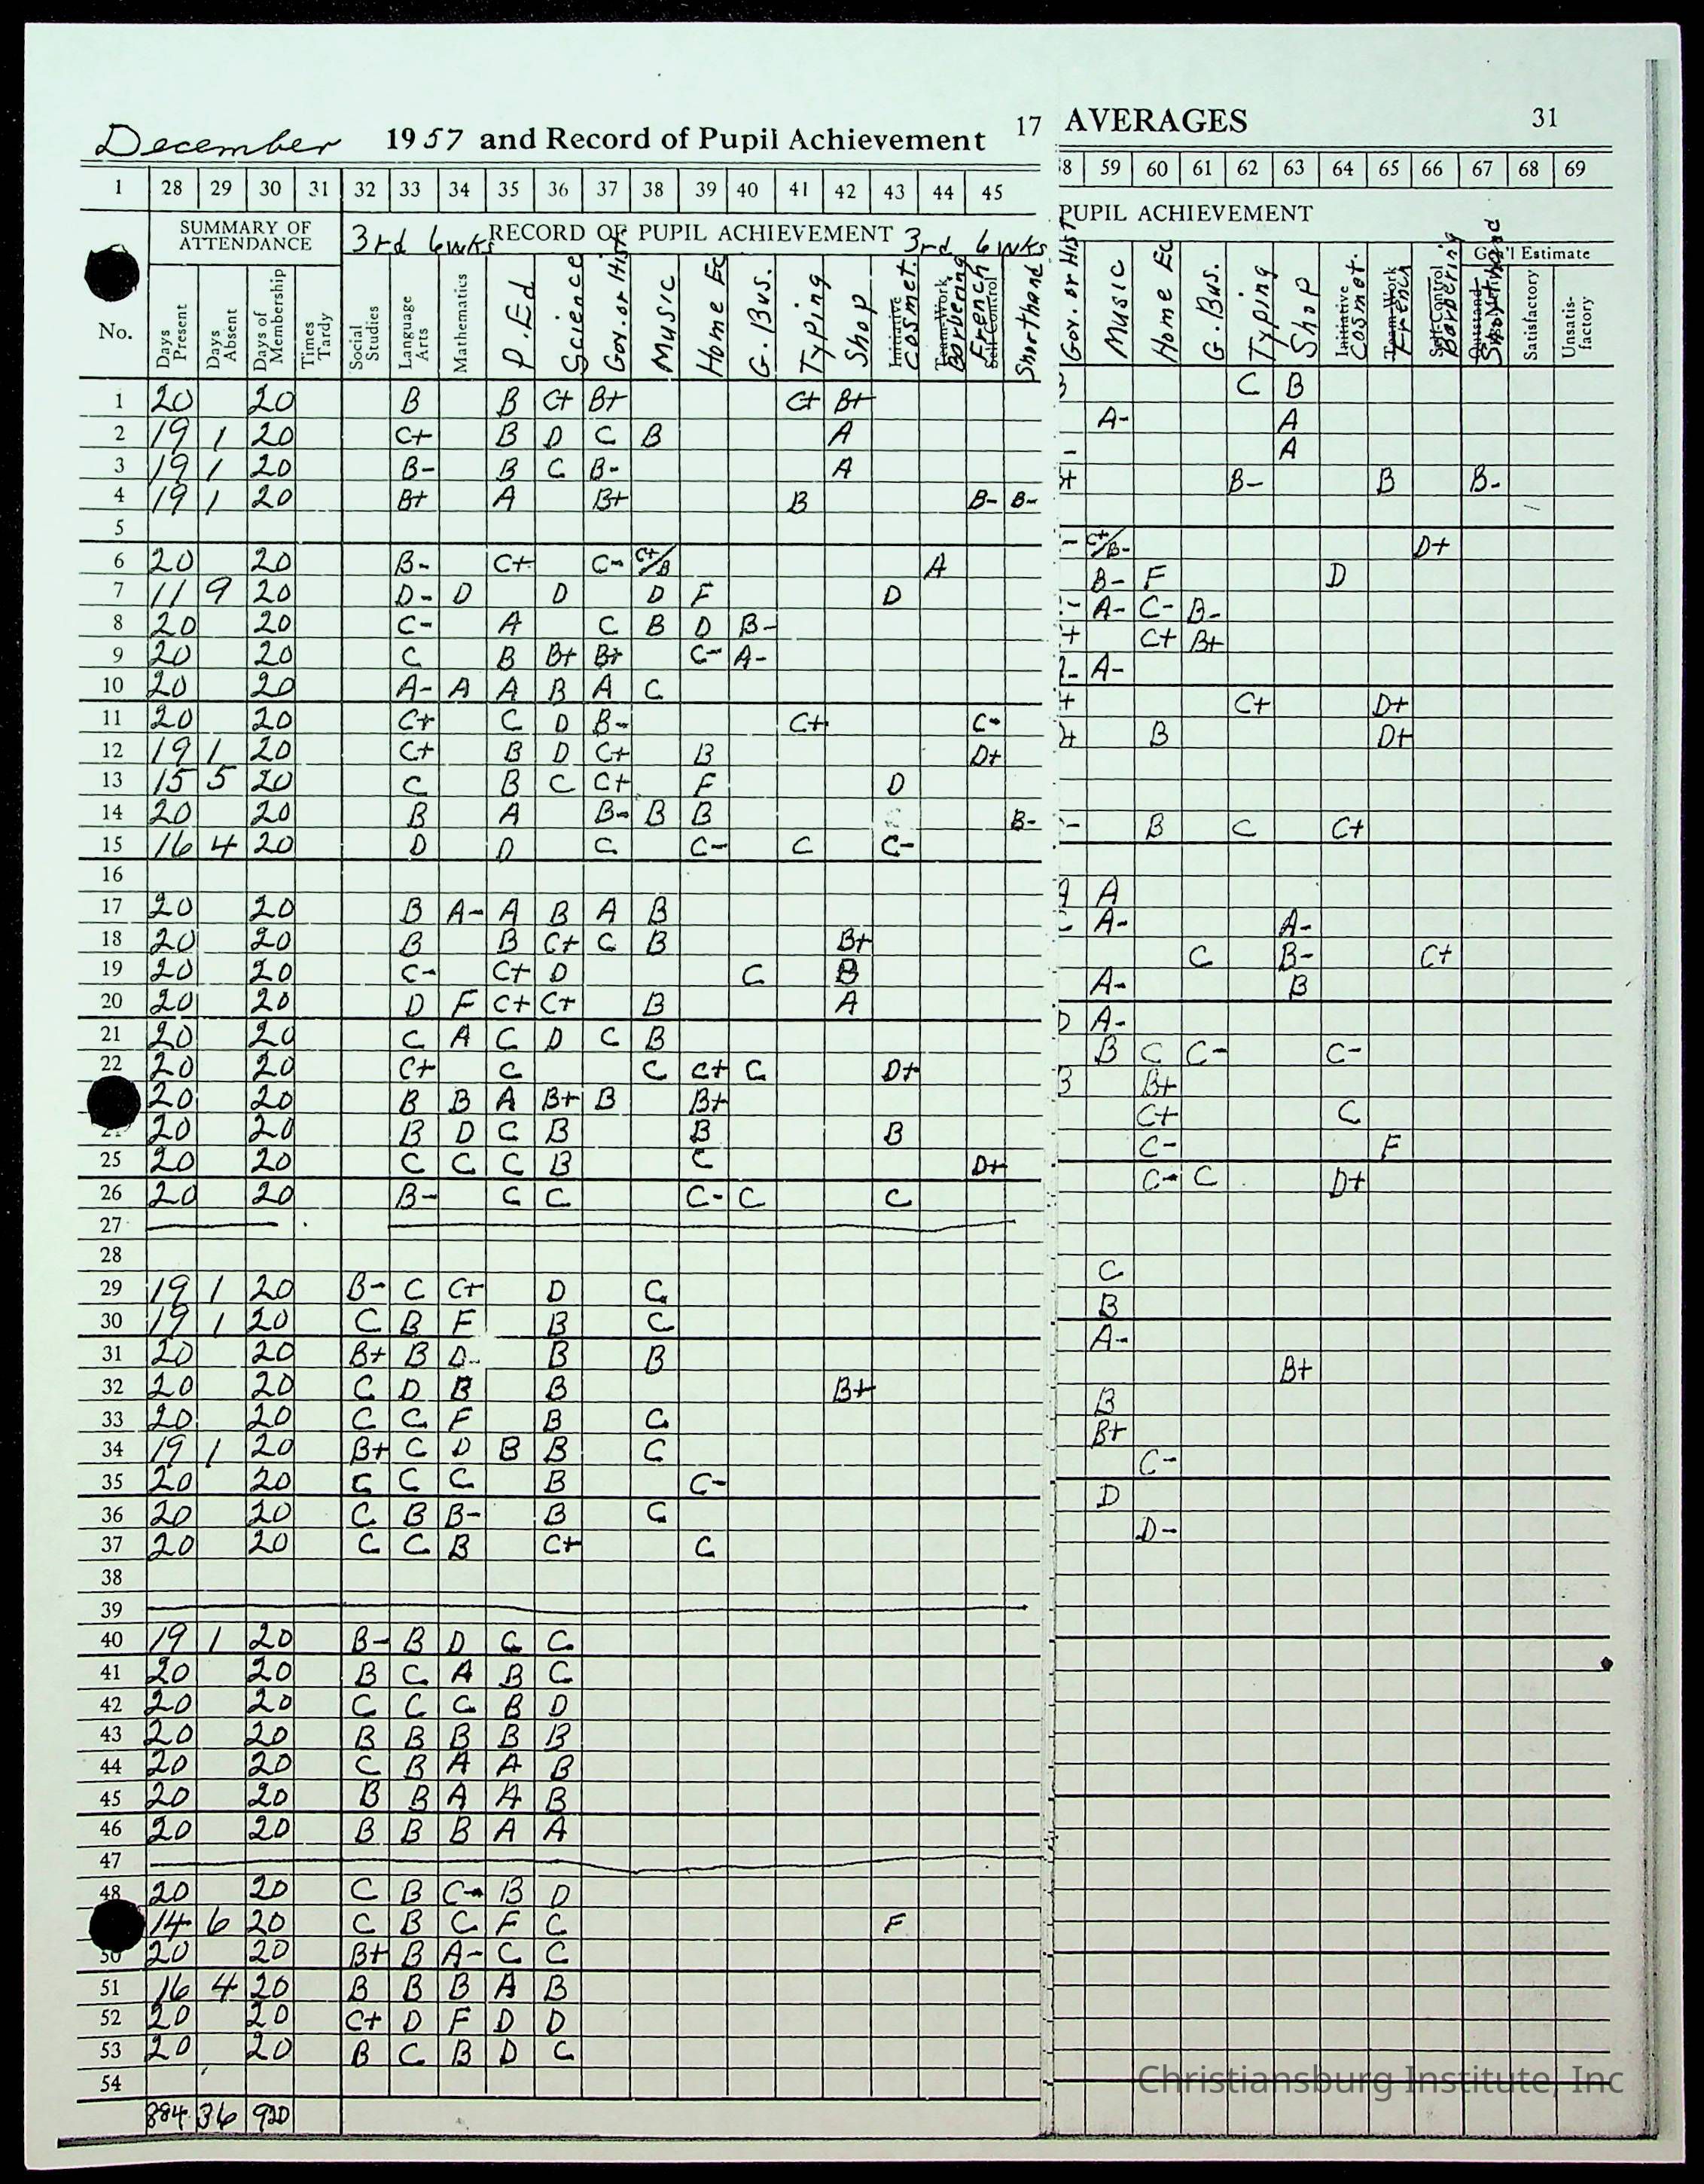 December 1957 and Record of Pupil Achievement 17 AVERAGES 31
1 28 29 30 31 32 33 34 35 36 37 38 39 40 41 42 43 44 45 59 60 61 62 63 64 65 66 67 68 69
SUMMARY OF ATTENDANCE 3rd 6wks RECORD OF PUPIL ACHIEVEMENT 3rd 6wks PUPIL ACHIEVEMENT
No. Days Present Days Absent Days of Membership Times Tardy Social Studies Language Arts Mathematics P.Ed Science Gov. or Hist Music Home Ec G. Bus. Typing Shop Initiative Cosmet. Team-Work Barbering French Self Control Shorthand Gov. or Hist Music Home Ec G. Bus. Typing Shop Initiative Cosmet. Team-Work French Self-Control Barbering Shorthand Gen'l Estimate Satisfactory Unsatis-factory
1 20 20 B B C+ B+ C+ B+ C B
2 19 1 20 C+ B D C B A A- A
3 19 1 20 B- B C B- A - A
4 19 1 20 B+ A B+ B B- B- + B- B B-
5
6 20 20 B- C+ C- C+/B A - C+/B- D+
7 11 9 20 D- D D D F D B- F D
8 20 20 C- A C B D B- - A- C- B-
9 20 20 C B B+ B+ C- A- + C+ B+
10 20 20 A- A A B A C - A-
11 20 20 C+ C D B- C+ C- + C+ D+
12 19 1 20 C+ B D C+ B D+ + B D+
13 15 5 20 C B C C+ F D
14 20 20 B A B- B B B-
15 16 4 20 D D C C- C C- - B C C+
16
17 20 20 B A- A B A B A A
18 20 20 B B C+ C B B+ C A- A-
19 20 20 C- C+ D C B C B- C+
20 20 20 D F C+ C+ B A A- B
21 20 20 C A C D C B D A-
22 20 20 C+ C C C+ C D+ B C C- C-
20 20 B B A B+ B B+ B B+
20 20 B D C B B B C+ C
25 20 20 C C C B C D+ C- F
26 20 20 B- C C C- C C C- C D+
27
28
29 19 1 20 B- C C+ D C C
30 19 1 20 C B F B C B
31 20 20 B+ B D- B B A-
32 20 20 C D B B B+ B+
33 20 20 C C F B C B
34 19 1 20 B+ C D B B C B+
35 20 20 C C C B C- C-
36 20 20 C B B- B C D
37 20 20 C C B C+ C D-
38
39
40 19 1 20 B- B D C C
41 20 20 B C A B C
42 20 20 C C C B D
43 20 20 B B B B B
44 20 20 C B A A B
45 20 20 B B A A B
46 20 20 B B B A A
47
48 20 20 C B C- B D
14 6 20 C B C F C F
50 20 20 B+ B A- C C
51 16 4 20 B B B A B
52 20 20 C+ D F D D
53 20 20 B C B D C
54
884 36 920
Christiansburg Institute, Inc